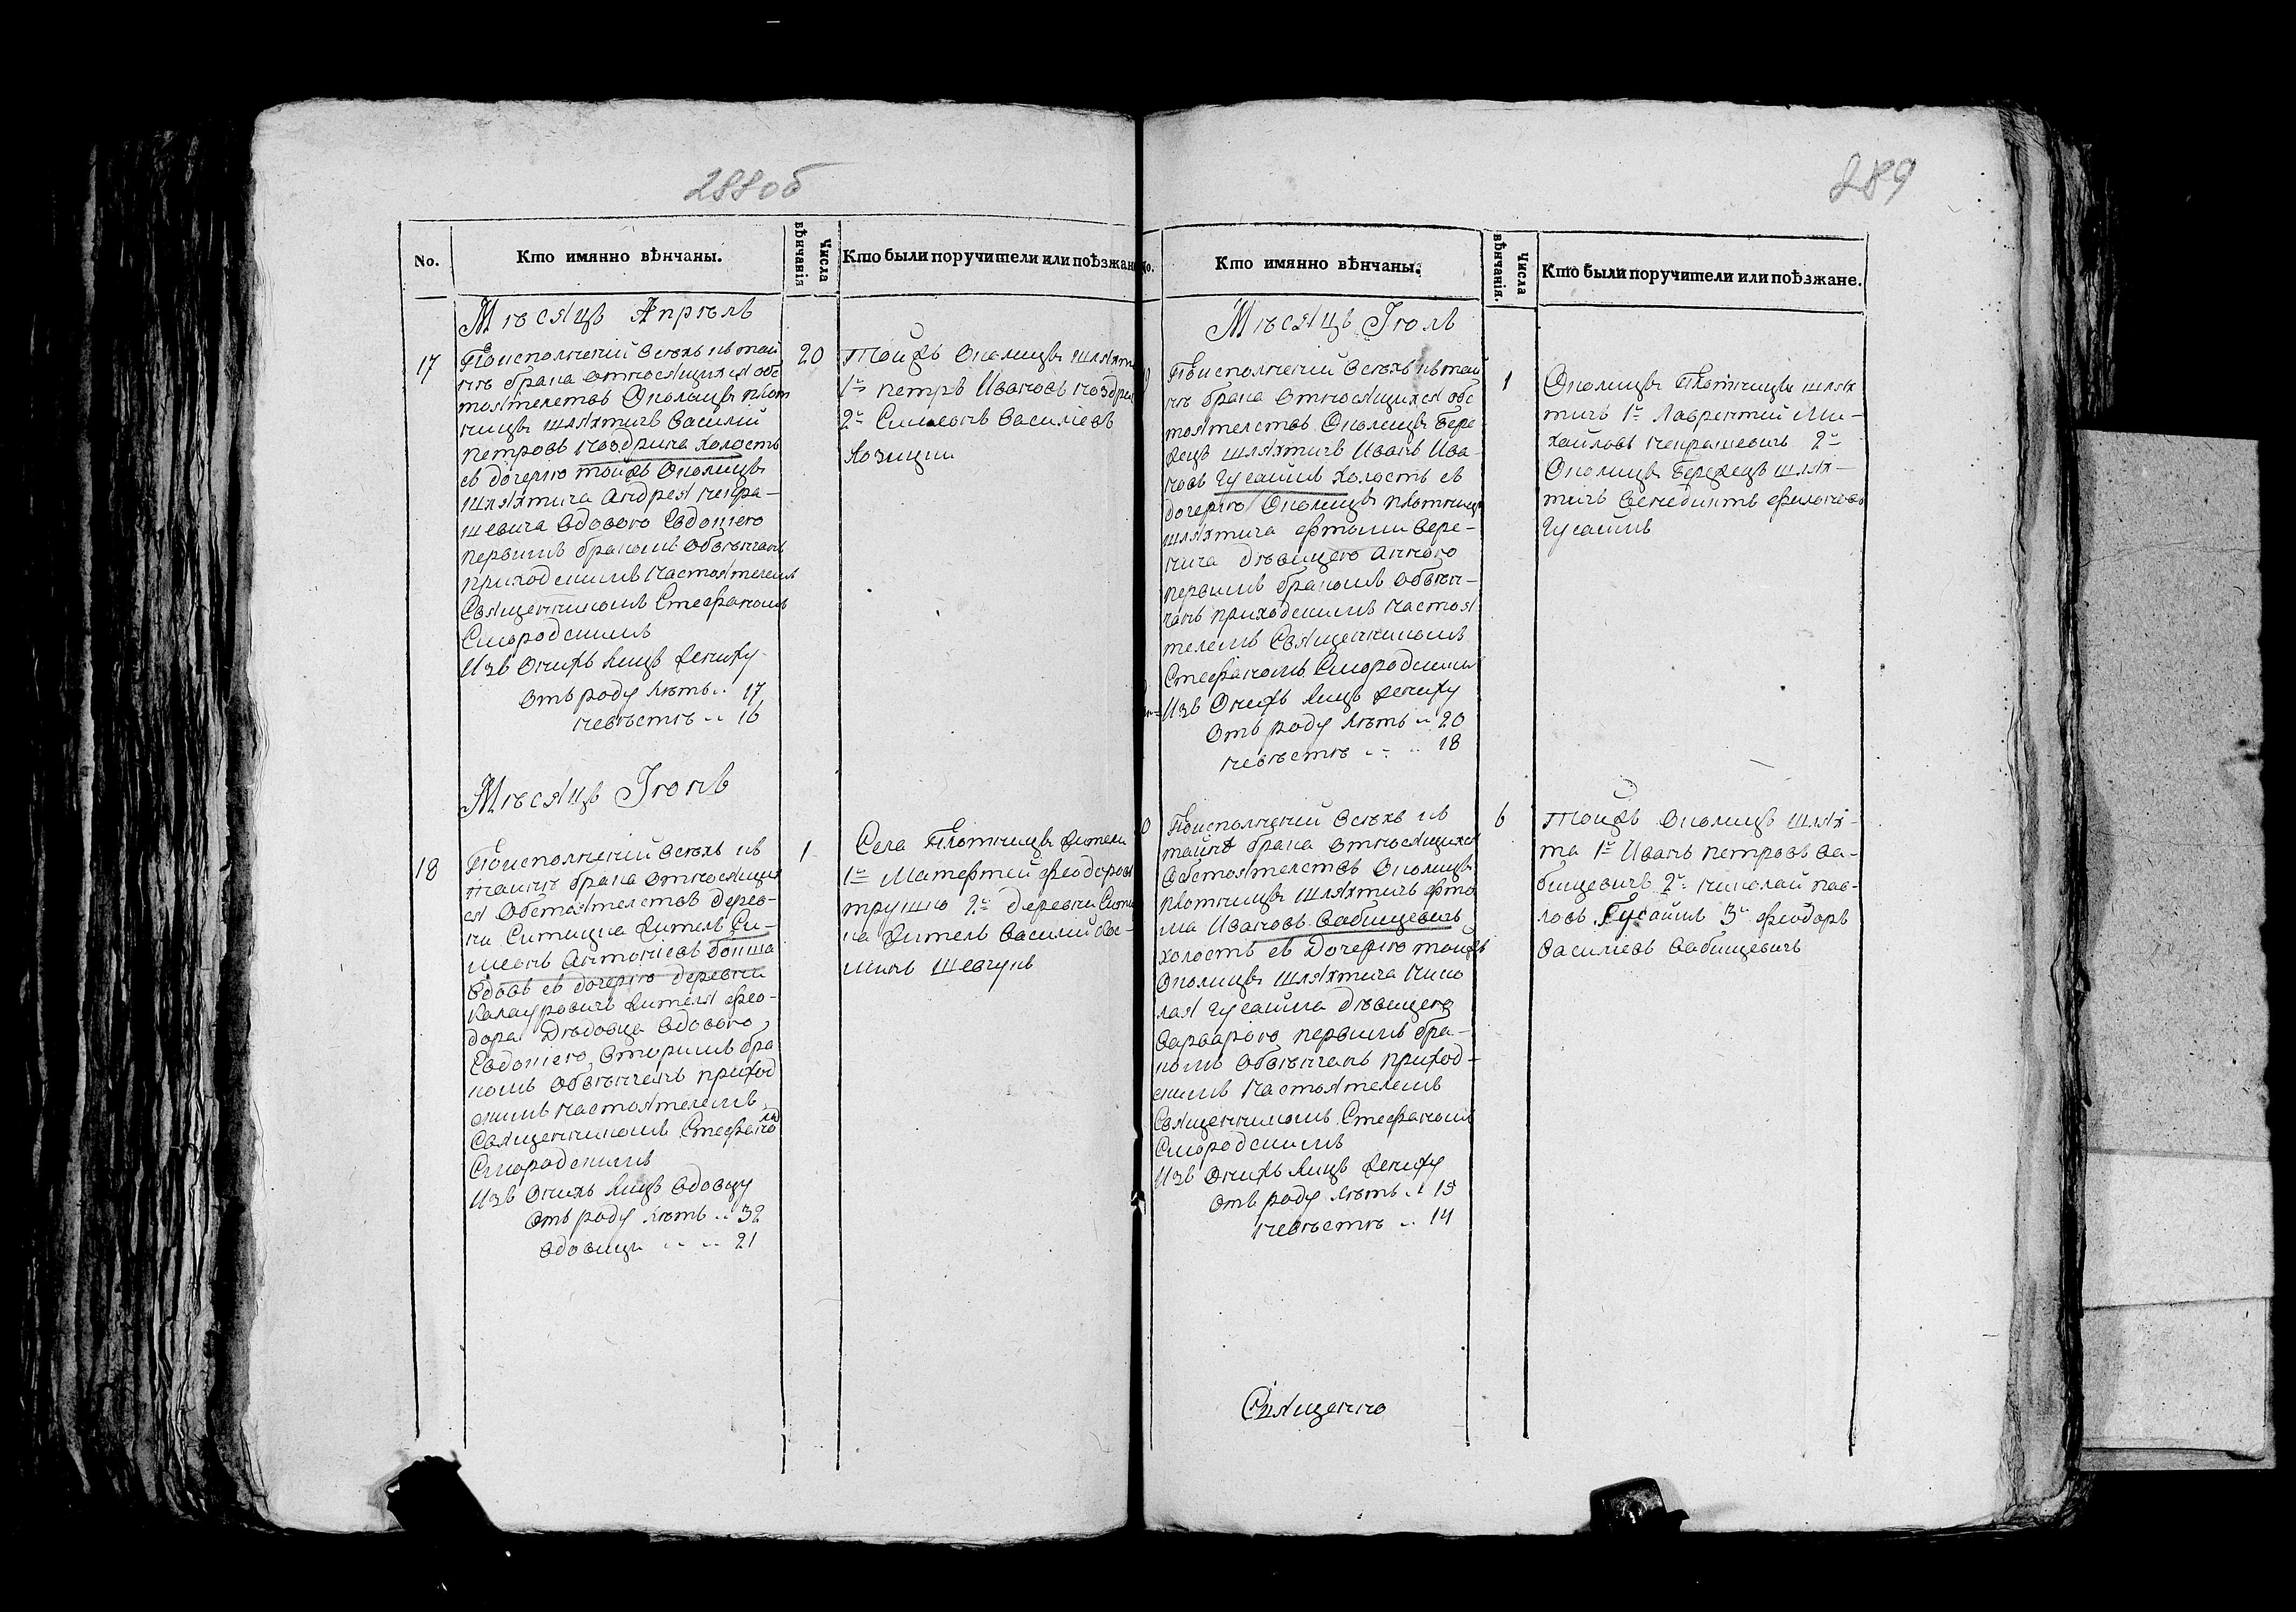 288об
No.
Кто имянно вѣнчаны.
Числа вѣнчанія
Кто были поручители или поѣзжан
Мѣсяцъ Апрѣль
17
По исполненій всѣхъ къ тай
нѣ брака относящихся обс
тоятелствъ Околицы Плот
ницы шляхтичъ Василій
Петровъ Ноздрина холостъ
съ дочерію тойжъ Околицы
шляхтича Андрея Некра-
шевича вдовою Евдокіею
первымъ бракомъ обвѣнчанъ
приходскимъ настоятелемъ
Священникомъ Стефаномъ
Смородскимъ
Изъ оныхъ лицъ жениху
отъ роду лѣтъ .. 17
невѣстѣ .. 16
20
Тойжъ околицы шляхти
1й Петръ Ивановъ Ноздрин
2й Симеонъ Василіевъ
Лозицкий
Мѣсяцъ Іюнь
18
По исполненій всѣхъ къ
таинѣ брака относящих
ся обстоятелствъ дерев-
ни Ситицка житель Си-
меонъ Антоніевъ Бокша
вдовъ съ дочерію деревни
Калауровичъ жителя Фео-
дора Дѣдовца вдовою
Евдокіею, вторымъ бра
комъ обвѣнчанъ приход
скимъ настоятелемъ
Священникомъ Стефаномъ
Смородскимъ
Изъ оныхъ лицъ вдовцу
отъ роду лѣтъ .. 32
вдовицы .. .. 21
1
Села Плотницы жители
1й Матефтей Феодоровъ
Трушко 2й деревни Сити
ка житель Василий
Шевчукъ
289
No.
Кто имянно вѣнчаны.
Числа вѣнчанія.
Кто были поручители или поѣзжане.
Мѣсяцъ Іюль
По исполненій всѣхъ къ тай
нѣ брака относящихся обс
тоятелствъ Околицы Бере
жецъ шляхтичъ Иванъ Ива-
новъ Гусаймъ холостъ съ
дочерію Околицы Плотницы
шляхтича Фтомы Вере-
нича дѣвицею Анною
первымъ бракомъ обвѣн-
чанъ приходскимъ настоя
телемъ Священникомъ
Стефаномъ Смородскимъ
Изъ оныхъ лицъ жениху
отъ роду лѣтъ .. 20
невѣстѣ .. .. 18
1
Околицы Плотницы шлях
тичъ 1й Лаврентий Ми-
хайловъ Некрашевичъ 2й
Околицы Бережецъ шлях-
тичъ Венедиктъ Филоновъ
Гусаймъ
0
По исполненій всѣхъ къ
тайнѣ брака относящихся
обстоятелствъ Околицы
Плотницы шляхтичъ Фто
ма Ивановъ Вабищевичъ
холостъ съ дочерію тойжъ
Околицы шляхтича Нико
лая Гусайма дѣвицею
Варварою, первымъ бра-
комъ обвѣнчанъ приход-
скимъ настоятелемъ
Священникомъ Стефаномъ
Смородскимъ
Изъ оныхъ лицъ жениху
отъ роду лѣтъ .. 15
невѣстѣ .. 14
6
Тойжъ околицы шлях-
та 1й Иванъ Петровъ Ва-
бищевичъ 2й Николай Пав-
ловъ Гусаймъ 3й Феодоръ
Василіевъ Вабищевичъ
Священно